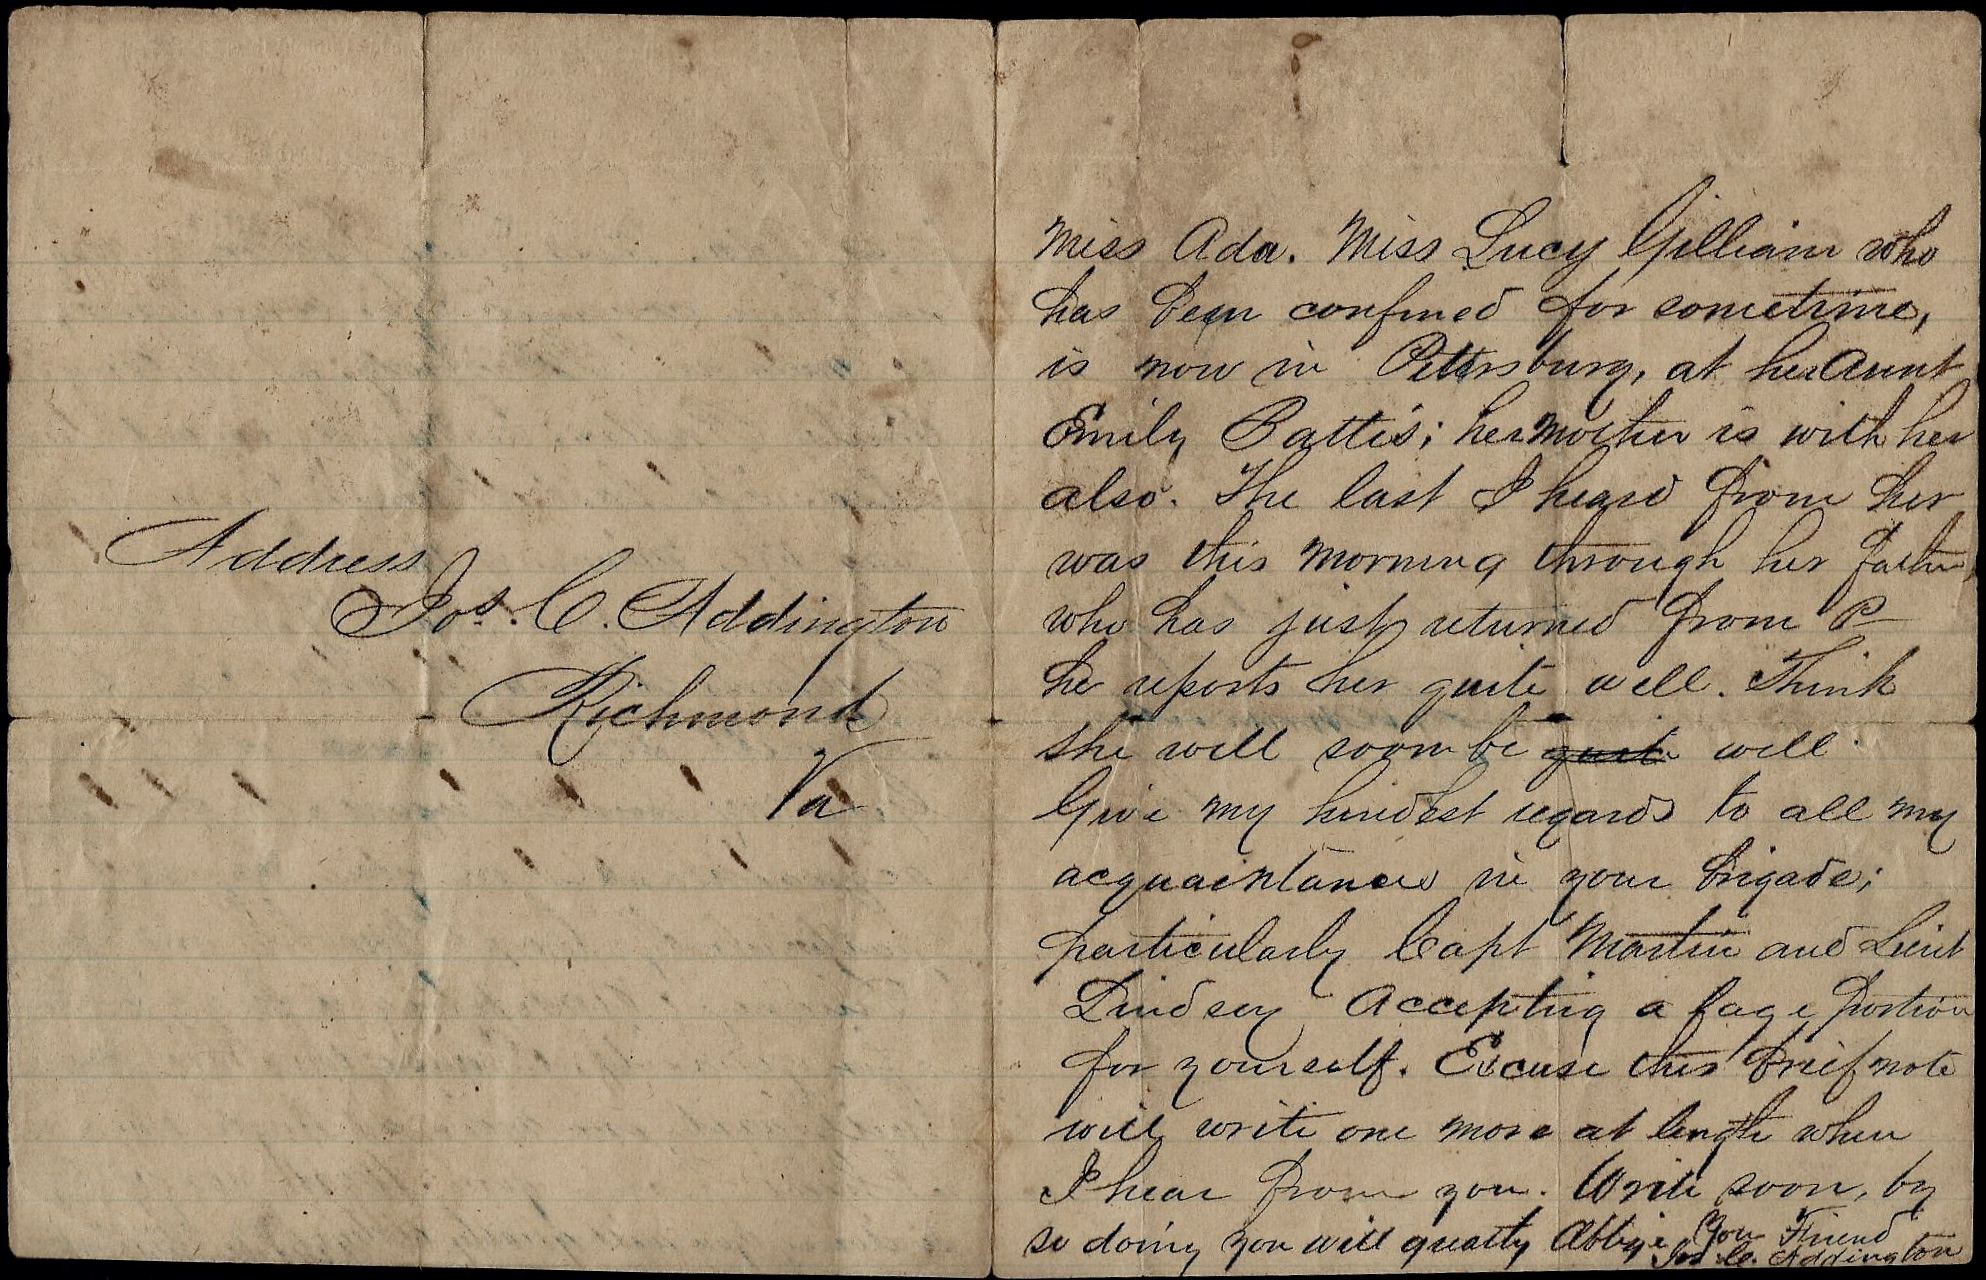 Address
Jos. C. Addington
Richmond
Va
Miss Ada. Miss Lucy Gilliam who
has been confined for sometime,
is now in Petersburg, at her Aunt
Emily Battis; her mother is with her
also. The last I heard from her
was this morning through her father,
who has just returned from P
he reports her quite well. Think
she will soon be quite well.
Give my kindest regards to all my
acquaintances in your brigade;
particularly Capt Martin and Lieut
Lindsey Accepting a large portion
for yourself. Excuse this brief note
will write one more at length when
I hear from you. Write soon, by
so doing you will greatly Oblige Your Friend
Jos C. Addington